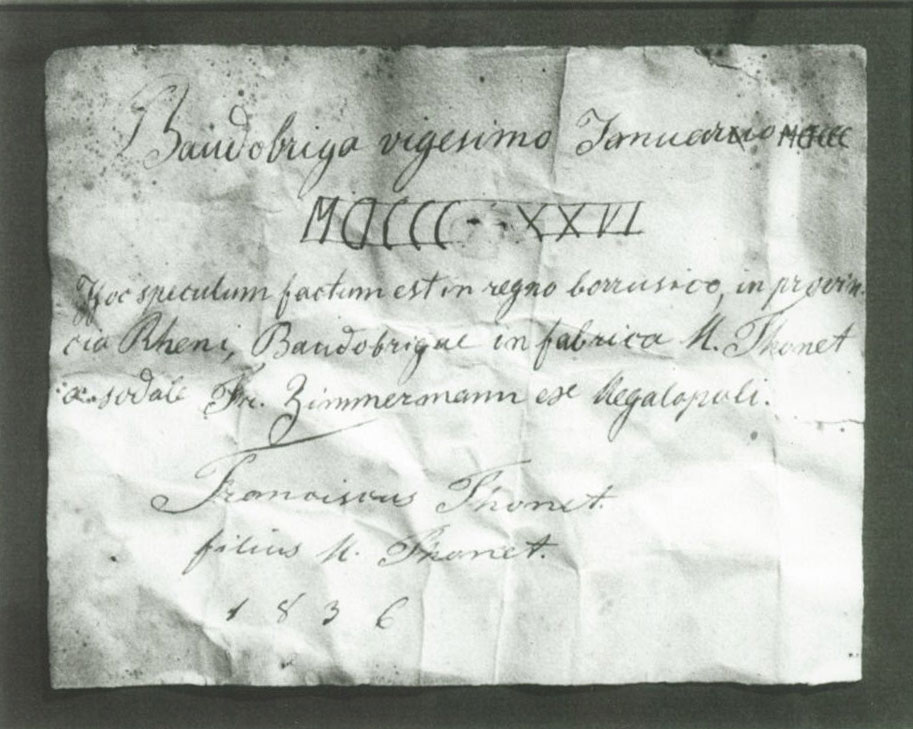 Baudobriga vigesimo Januario
MDCCC XXVI
Hoc speculum factum est in regno borrusico, in provin-
cia Rheni, Baudobrigae in fabrica M. Thonet
a sodale Fr. Zimmermann ex Megalopoli.
Franciscus Thonet.
filius M. Thonet.
1836